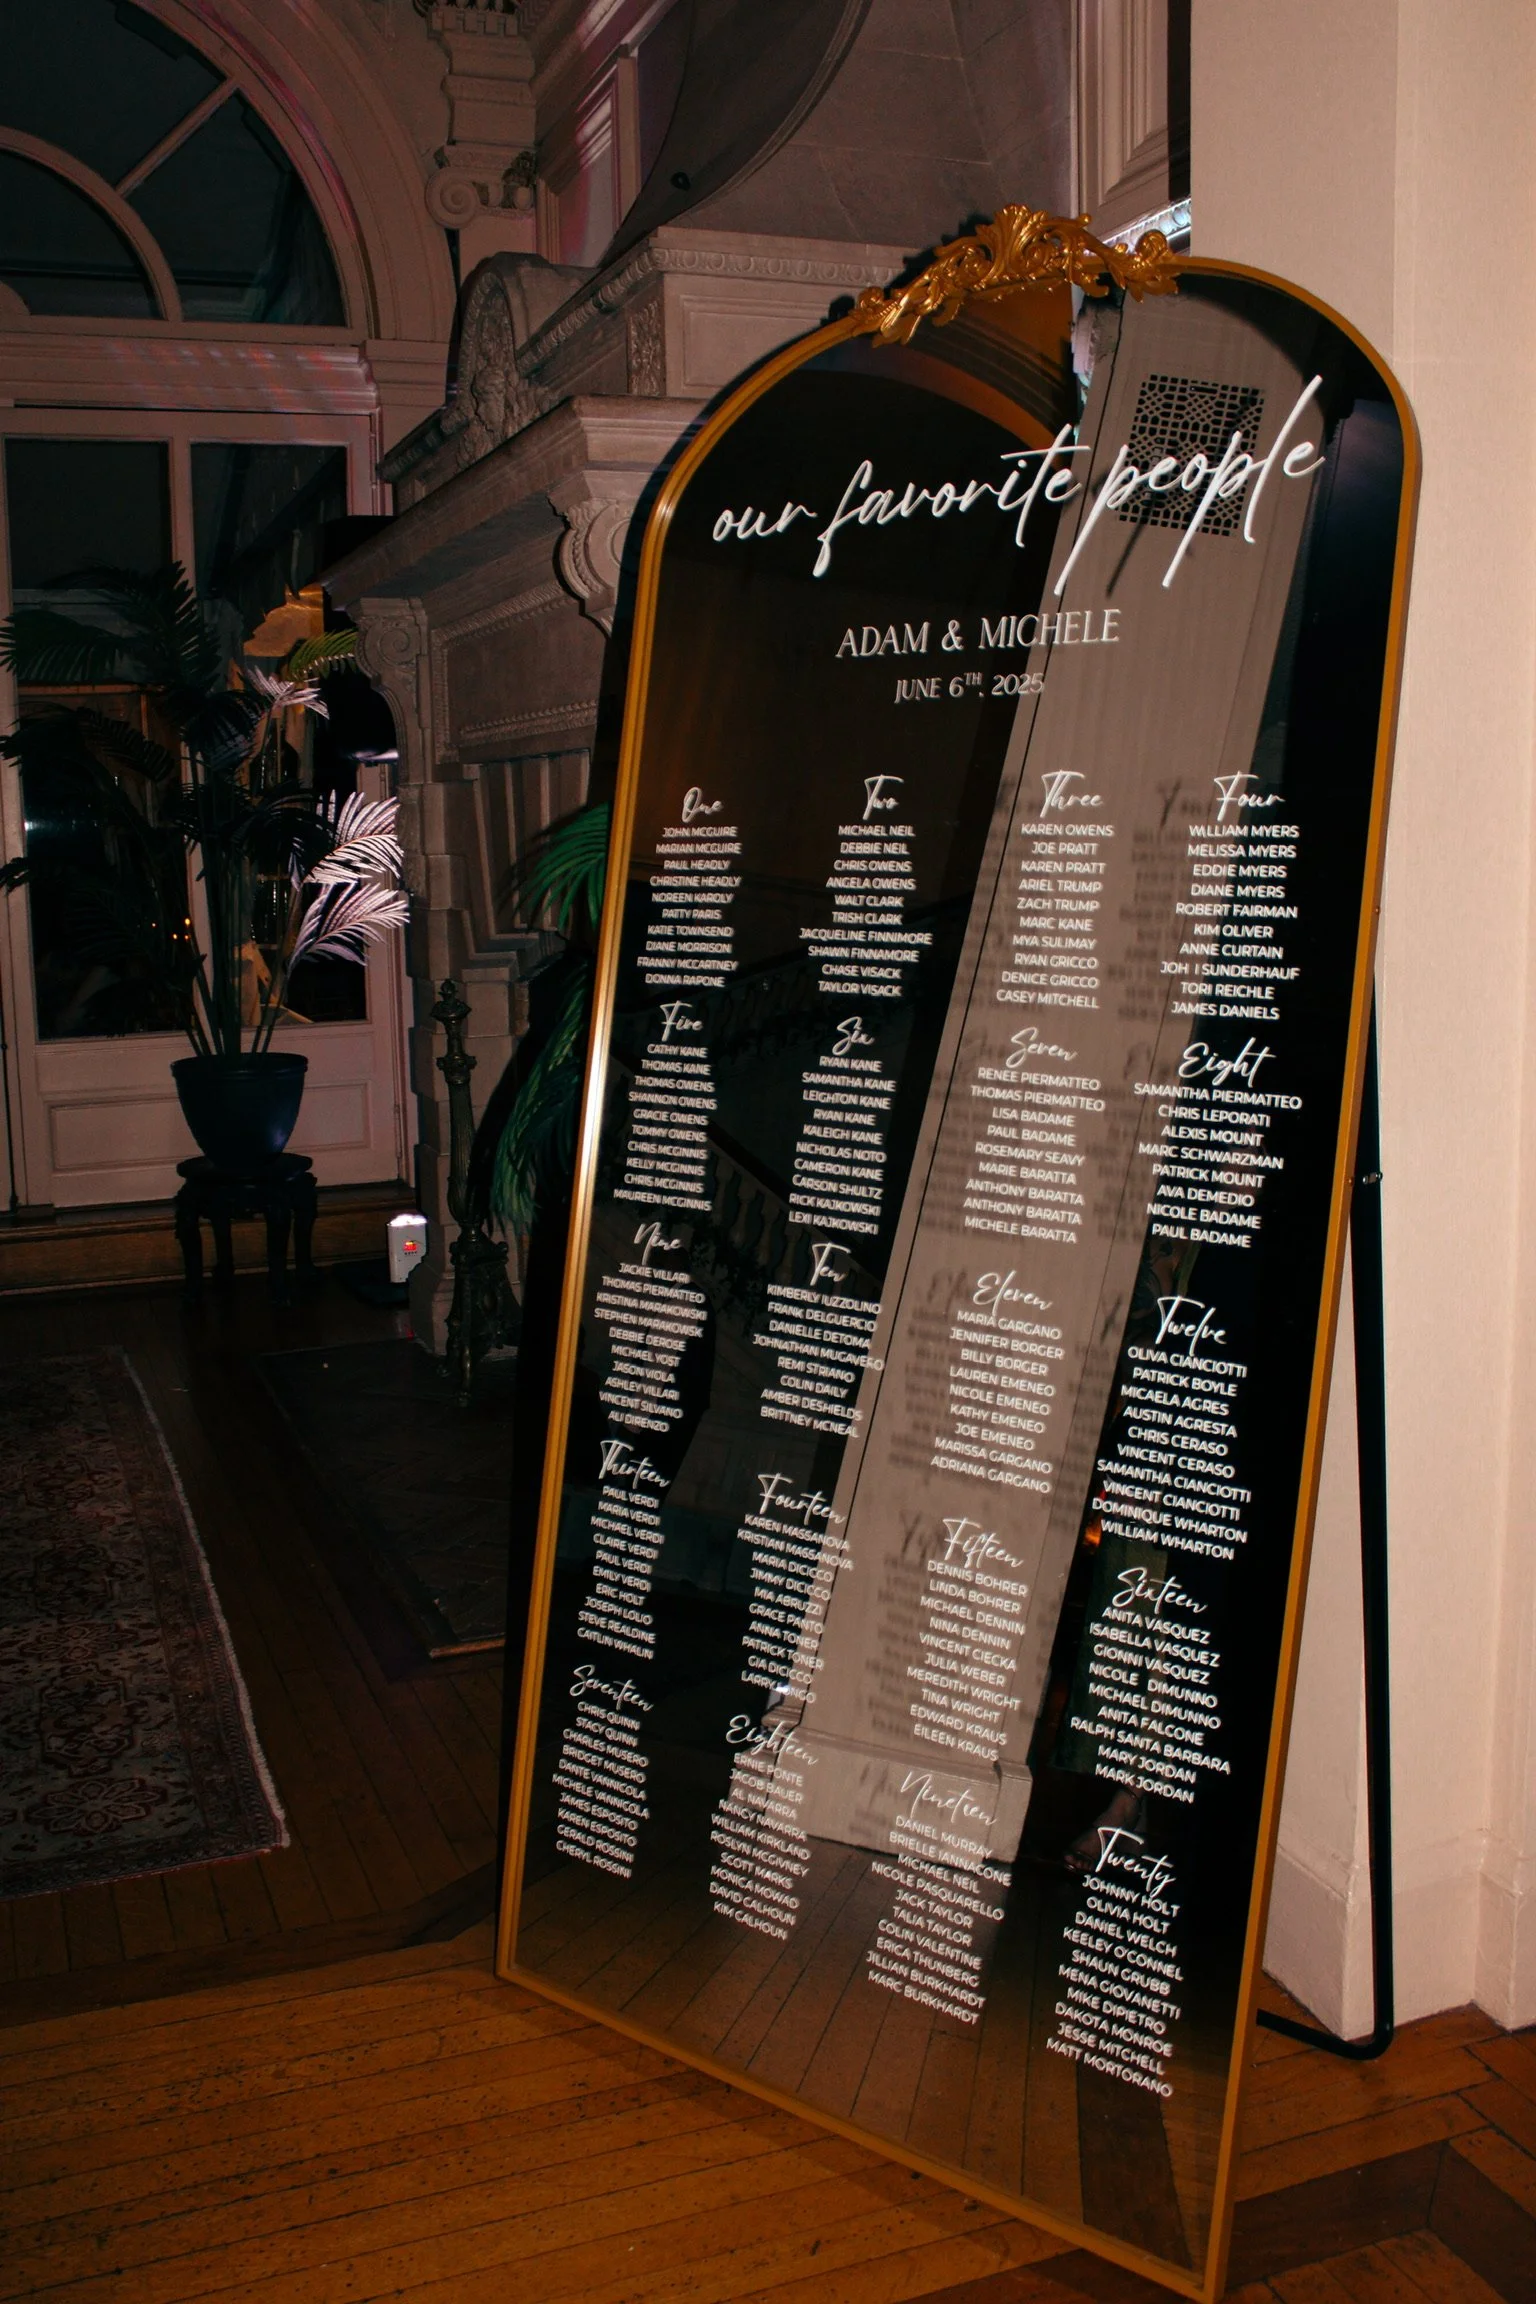 our favorite people
ADAM & MICHELE
JUNE 6TH, 2025
One
JOHN MCGUIRE
MARIAN MCGUIRE
PAUL HEADLY
CHRISTINE HEADLY
NOREEN KAROLY
PATTY PARIS
KATIE TOWNSEND
DIANE MORRISON
FRANNY MCCARTNEY
DONNA RAPONE
Two
MICHAEL NEIL
DEBBIE NEIL
CHRIS OWENS
ANGELA OWENS
WALT CLARK
TRISH CLARK
JACQUELINE FINNIMORE
SHAWN FINNAMORE
CHASE VISACK
TAYLOR VISACK
Three
KAREN OWENS
JOE PRATT
KAREN PRATT
ARIEL TRUMP
ZACH TRUMP
MARC KANE
MYA SULIMAY
RYAN GRICCO
DENICE GRICCO
CASEY MITCHELL
Four
WILLIAM MYERS
MELISSA MYERS
EDDIE MYERS
DIANE MYERS
ROBERT FAIRMAN
KIM OLIVER
ANNE CURTAIN
JOH I SUNDERHAUF
TORI REICHLE
JAMES DANIELS
Five
CATHY KANE
THOMAS KANE
THOMAS OWENS
SHANNON OWENS
GRACIE OWENS
TOMMY OWENS
CHRIS MCGINNIS
KELLY MCGINNIS
CHRIS MCGINNIS
MAUREEN MCGINNIS
Six
RYAN KANE
SAMANTHA KANE
LEIGHTON KANE
RYAN KANE
KALEIGH KANE
NICHOLAS NOTO
CAMERON KANE
CARSON SHULTZ
RICK KAJKOWSKI
LEXI KAJKOWSKI
Seven
RENEE PIERMATTEO
THOMAS PIERMATTEO
LISA BADAME
PAUL BADAME
ROSEMARY SEAVY
MARIE BARATTA
ANTHONY BARATTA
ANTHONY BARATTA
MICHELE BARATTA
Eight
SAMANTHA PIERMATTEO
CHRIS LEPORATI
ALEXIS MOUNT
MARC SCHWARZMAN
PATRICK MOUNT
AVA DEMEDIO
NICOLE BADAME
PAUL BADAME
Nine
JACKIE VILLARI
THOMAS PIERMATTEO
KRISTINA MARAKOWSKI
STEPHEN MARAKOWSK
DEBBIE DEROSE
MICHAEL YOST
JASON VIOLA
ASHLEY VILLARI
VINCENT SILVANO
ALI DIRENZO
Ten
KIMBERLY IUZZOLINO
FRANK DELGUERCIO
DANIELLE DETOMA
JOHNATHAN MUGAVERO
REMI STRIANO
COLIN DAILY
AMBER DESHIELDS
BRITTNEY MCNEAL
Eleven
MARIA GARGANO
JENNIFER BORGER
BILLY BORGER
LAUREN EMENEO
NICOLE EMENEO
KATHY EMENEO
JOE EMENEO
MARISSA GARGANO
ADRIANA GARGANO
Twelve
OLIVA CIANCIOTTI
PATRICK BOYLE
MICAELA AGRES
AUSTIN AGRESTA
CHRIS CERASO
VINCENT CERASO
SAMANTHA CIANCIOTTI
VINCENT CIANCIOTTI
DOMINIQUE WHARTON
WILLIAM WHARTON
Thirteen
PAUL VERDI
MARIA VERDI
MICHAEL VERDI
CLAIRE VERDI
PAUL VERDI
EMILY VERDI
ERIC HOLT
JOSEPH LOLIO
STEVE REALDINE
CAITLIN WHALIN
Fourteen
KAREN MASSANOVA
KRISTIAN MASSANOVA
MARIA DICICCO
JIMMY DICICCO
MIA ABRUZZI
GRACE PANTO
ANNA TONER
PATRICK TONER
GIA DICICCO
LARRY
Fifteen
DENNIS BOHRER
LINDA BOHRER
MICHAEL DENNIN
NINA DENNIN
VINCENT CIECKA
JULIA WEBER
MEREDITH WRIGHT
TINA WRIGHT
EDWARD KRAUS
EILEEN KRAUS
Sixteen
ANITA VASQUEZ
ISABELLA VASQUEZ
GIONNI VASQUEZ
NICOLE DIMUNNO
MICHAEL DIMUNNO
ANITA FALCONE
RALPH SANTA BARBARA
MARY JORDAN
MARK JORDAN
Seventeen
CHRIS QUINN
STACY QUINN
CHARLES MUSERO
BRIDGET MUSERO
DANTE VANNICOLA
MICHELE VANNICOLA
JAMES ESPOSITO
KAREN ESPOSITO
GERALD ROSSINI
CHERYL ROSSINI
Eighteen
ERNIE PONTE
JACOB BAUER
AL NAVARRA
NANCY NAVARRA
WILLIAM KIRKLAND
ROSLYN MCGIVNEY
SCOTT MARKS
MONICA MOWAD
DAVID CALHOUN
KIM CALHOUN
Nineteen
DANIEL MURRAY
BRIELLE IANNACONE
MICHAEL NEIL
NICOLE PASQUARELLO
JACK TAYLOR
TALIA TAYLOR
COLIN VALENTINE
ERICA THUNBERG
JILLIAN BURKHARDT
MARC BURKHARDT
Twenty
JOHNNY HOLT
OLIVIA HOLT
DANIEL WELCH
KEELEY O'CONNEL
SHAUN GRUBB
MENA GIOVANETTI
MIKE DIPIETRO
DAKOTA MONROE
JESSE MITCHELL
MATT MORTORANO